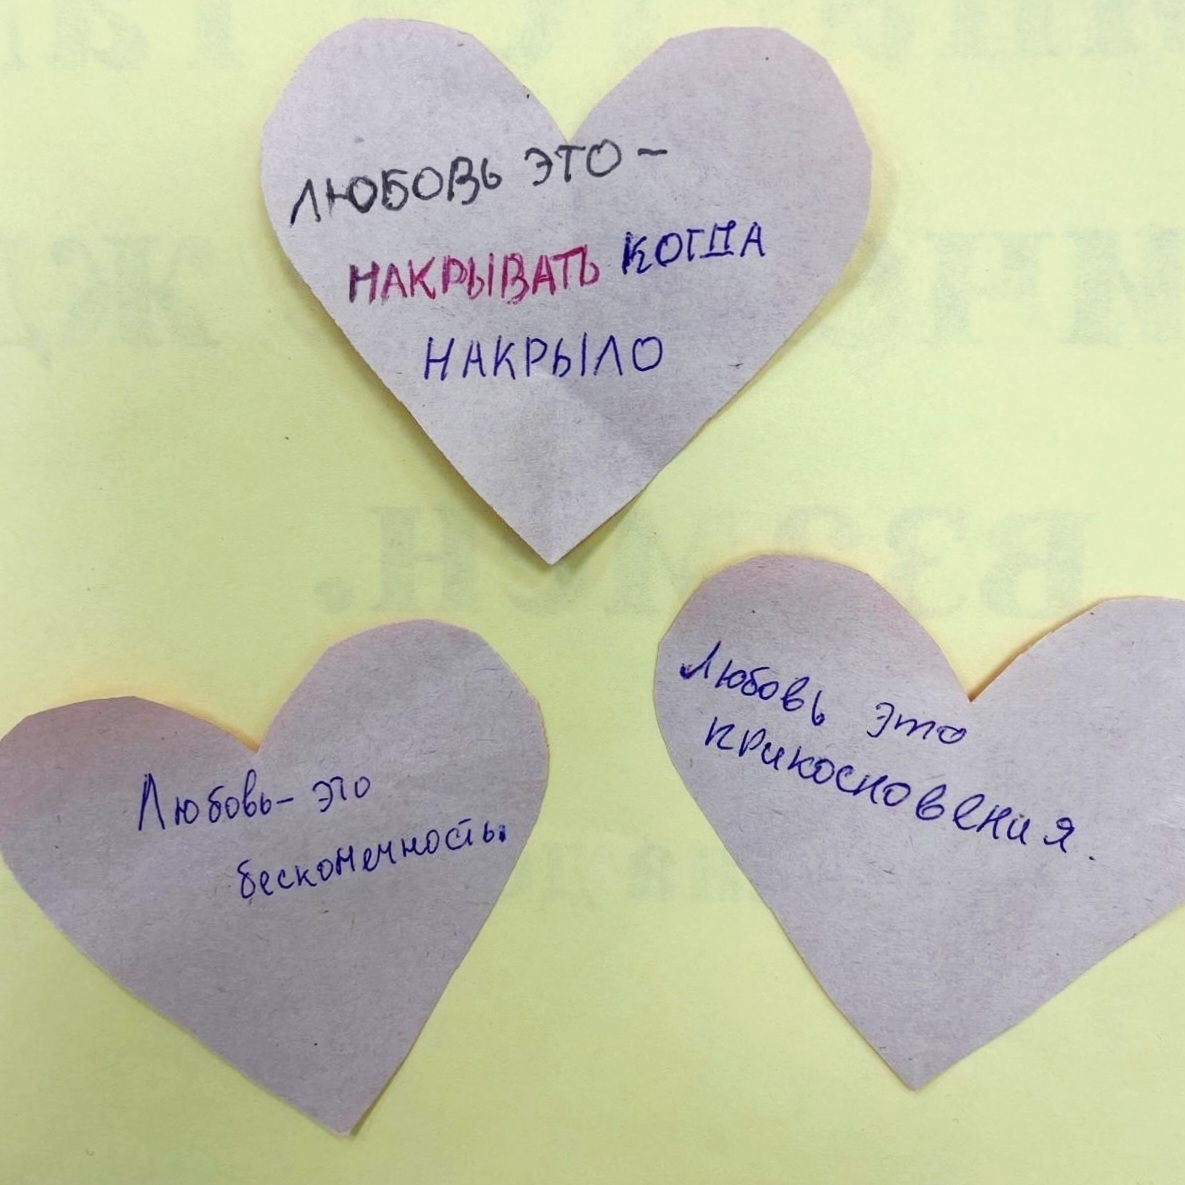 ЛЮБОВЬ ЭТО –
НАКРЫВАТЬ КОГДА
НАКРЫЛО
Любовь – это
бесконечность.
Любовь это
прикосновения.
ВЗАМЕН.